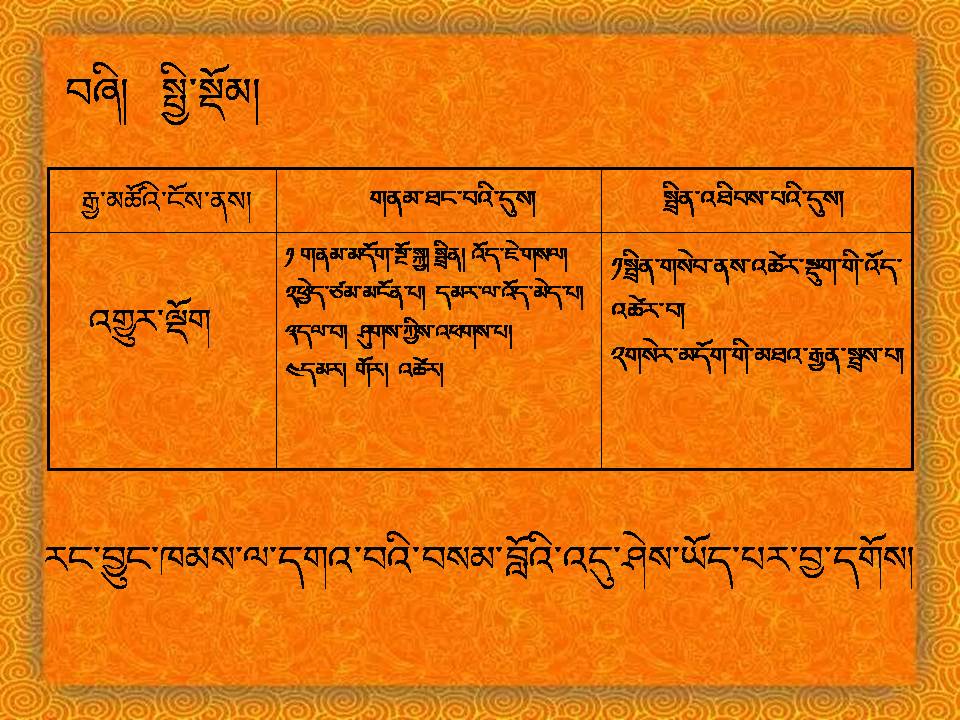 བཞི།  སྤྱི་སྡོམ།
རྒྱ་མཚོའི་ངོས་ནས། གནམ་ཐང་བའི་དུས། སྤྲིན་འཐིབས་པའི་དུས།
༡ གནམ་མདོག་སྔོ་སྐྱ། སྤྲིན། འོད་ཇེ་གསལ།
༢ཕྱེད་ཙམ་མངོན་པ། དམར་ལ་འོད་མེད་པ།
༣དལ་བ། ཤུགས་ཀྱིས་འཕགས་པ།
༤དམར། གོར། འཚེར།
༡སྤྲིན་གསེབ་ནས་འཚེར་སྡུག་གི་འོད་
འཚེར་བ།
༢གསེར་མདོག་གི་མཐའ་རྒྱན་སྤྲས་པ།
འགྱུར་ལྡོག
རང་བྱུང་ཁམས་ལ་དགའ་བའི་བསམ་བློའི་འདུ་ཤེས་ཡོད་པར་བྱ་དགོས།